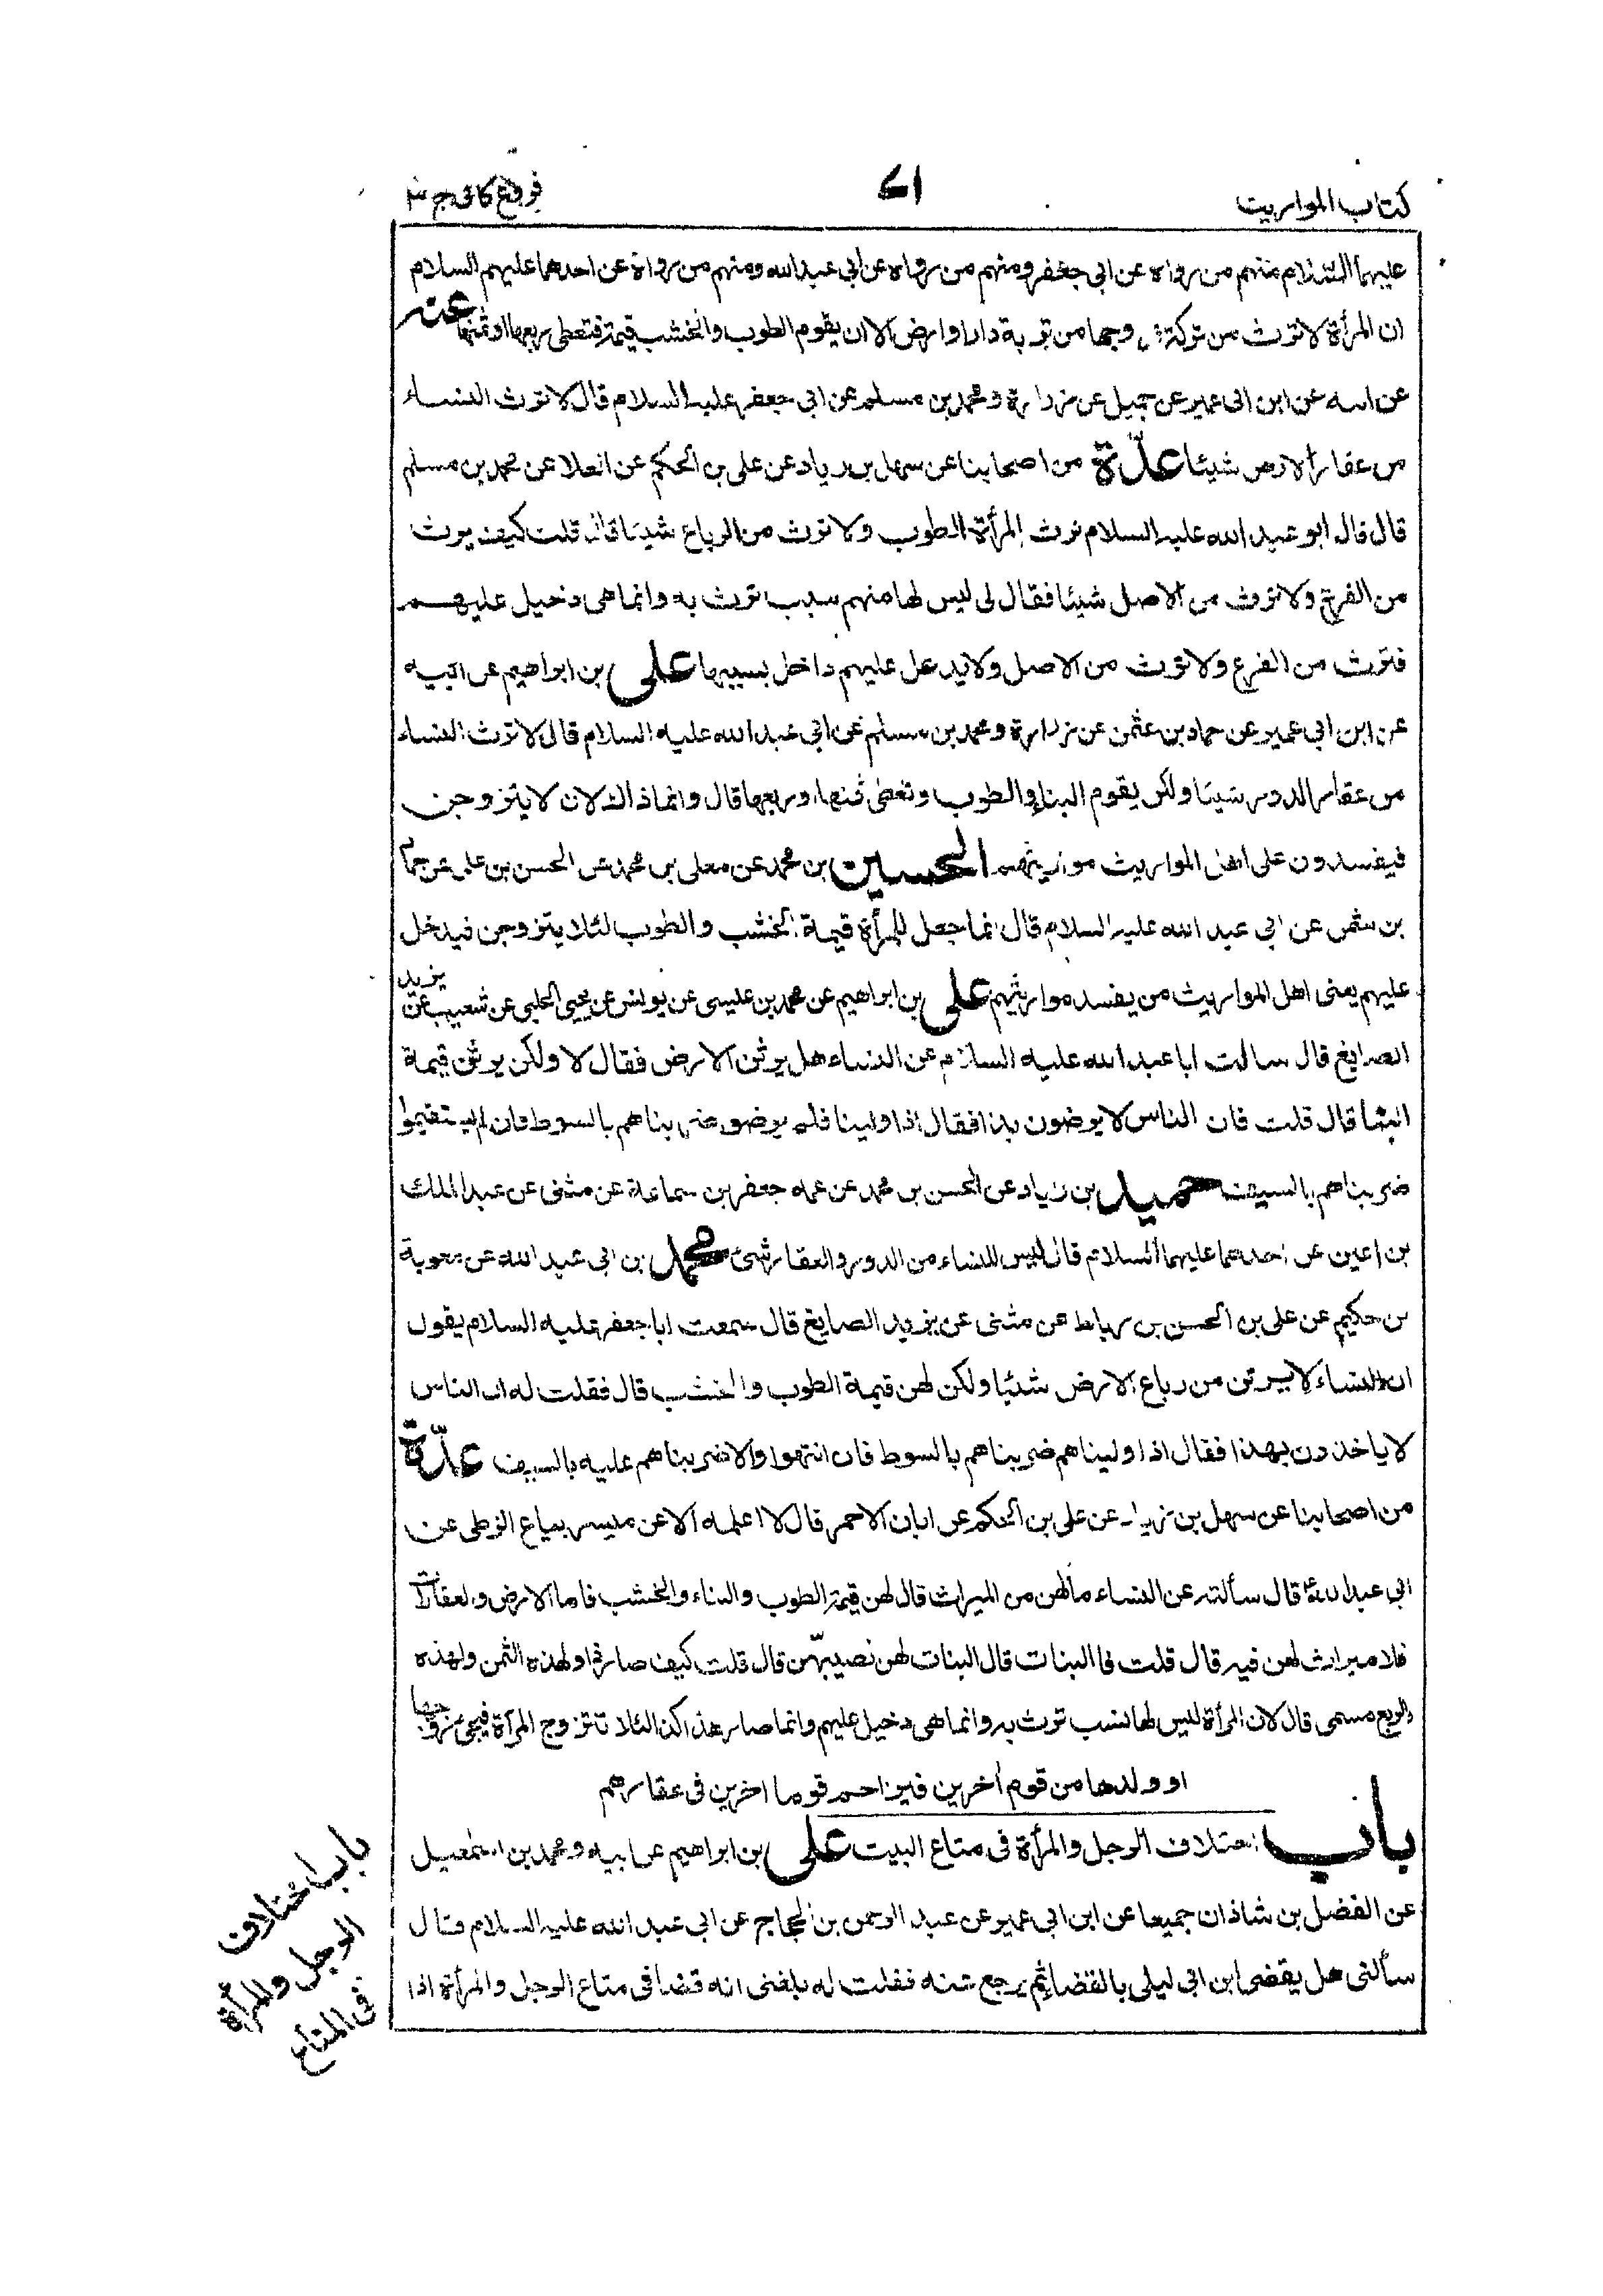 كتاب المواريث
٧١
فروع كافي ج ٣
عليهما السلام منهم من رواه عن ابي جعفر ومنهم من رواه عن ابي عبد الله ومنهم من رواه عن احدهما عليهم السلام
ان المرأة لا ترث من تركة زوجها من تربة دار او ارض الا ان يقوم الطوب والخشب قيمة فتعطى ربعها او ثمنها عنه
عن ابيه عن ابن ابى عمير عن جميل عن زرارة و محمد بن مسلم عن ابي جعفر عليه السلام قال لا ترث النساء
من عقار الارض شيئا عدّة من اصحابنا عن سهل بن زياد عن على بن الحكم عن العلا عن محمد بن مسلم
قال قال ابو عبد الله عليه السلام ترث المرأة الطوب ولا ترث من الرباع شيئا قال قلت كيف يرث
من الفرع ولا ترث من الاصل شيئا فقال لى ليس لها منهم سبب ترث به وانما هى دخيل عليهم
فترث من الفرع ولا ترث من الاصل ولا يدخل عليهم داخل بسببها على بن ابراهيم عن ابيه
عن ابن ابى عمير عن حماد بن عثمن عن زرارة و محمد بن مسلم عن ابي عبد الله عليه السلام قال لا ترث النساء
من عقار الدور شيئا ولكن يقوم البناء والطوب وتعطى ثمنها او ربعها قال وانما ذلك لان لا يتزوجن
فيفسدون على اهل المواريث مواريثهم الحسين بن محمد عن معلى بن محمد عن الحسن بن على عن حماد
بن عثمن عن ابي عبد الله عليه السلام قال انما جعل للمرأة قيمة الخشب والطوب لئلا يتزوجن فيدخل
عليهم يعنى اهل المواريث من يفسد مواريثهم على بن ابراهيم عن محمد بن عيسى عن يونس عن يحيى الحلبى عن شعيب عن يزيد
الصايغ قال سالت ابا عبد الله عليه السلام عن النساء هل يرثن الارض فقال لا ولكن يرثن قيمة
البناء قال قلت فان الناس لا يرضون بذا فقال اذا ولينا فلم يرضوا ضربناهم بالسوط فان لم يستقيموا
ضربناهم بالسيف حميد بن زياد عن الحسن بن محمد عن عمه جعفر بن سماعة عن مثنى عن عبد الملك
بن اعين عن احدهما عليهما السلام قال ليس للنساء من الدور والعقار شئ محمد بن ابى عبد الله عن معوية
بن حكيم عن على بن الحسن بن رباط عن مثنى عن يزيد الصايغ قال سمعت ابا جعفر عليه السلام يقول
ان النساء لا يرثن من رباع الارض شيئا ولكن لهن قيمة الطوب والخشب قال فقلت له ان الناس
لا ياخذون بهذا فقال اذا وليناهم ضربناهم بالسوط فان انتهوا والا ضربناهم عليه بالسيف عدّة
من اصحابنا عن سهل بن زياد عن على بن الحكم عن ابان الاحمر قال لا اعلمه الا عن ميسر بياع الزطى عن
ابى عبد الله قال سألته عن النساء ما لهن من الميراث قال لهن قيمة الطوب والبناء والخشب فاما الارض والعقارات
فلا ميراث لهن فيه قال قلت فالبنات قال البنات لهن نصيبهن قال قلت كيف صار ذا ولهذه الثمن ولهذه
الربع مسمى قال لان المرأة ليس لها نسب ترث به وانما هى دخيل عليهم وانما صار هذا كذا لئلا تتزوج المرأة فيجئ زوجها
او ولدها من قوم آخرين فيزاحم قوما اخرين فى عقارهم
باب اختلاف الرجل والمرأة فى متاع البيت على بن ابراهيم عن ابيه و محمد بن اسمعيل
عن الفضل بن شاذان جميعا عن ابن ابى عمير عن عبد الرحمن بن الحجاج عن ابى عبد الله عليه السلام قال
سألنى هل يقضى ابن ابى ليلى بالقضاء ثم يرجع عنه فقلت له بلغنى انه قضا فى متاع الرجل والمرأة اذا
باب اختلاف
الرجل والمرأة
فى المتاع